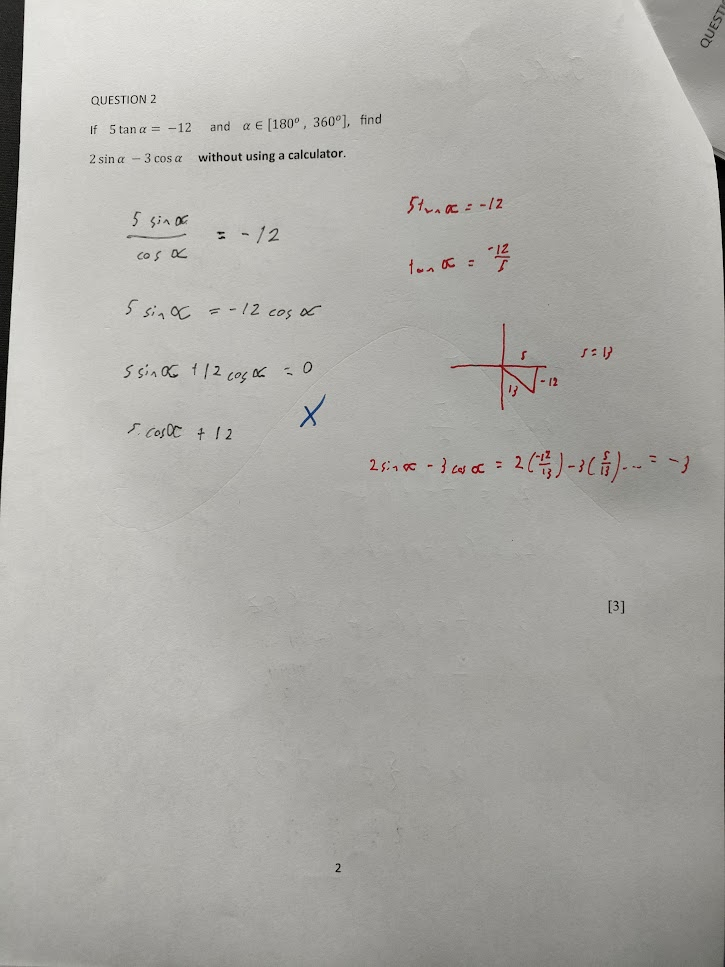 QUESTION 2
If 5 tan α = −12 and α ∈ [180°, 360°], find
2 sin α − 3 cos α without using a calculator.
5 sin α / cos α = -12
5 sin α = -12 cos α
5 sin α + 12 cos α = 0
5. cos α + 12
X
5 tan α = -12
tan α = -12/5
5
13
-12
r = 13
2 sin α - 3 cos α = 2(-12/13) - 3(5/13) ... = -3
[3]
2
QUESTI